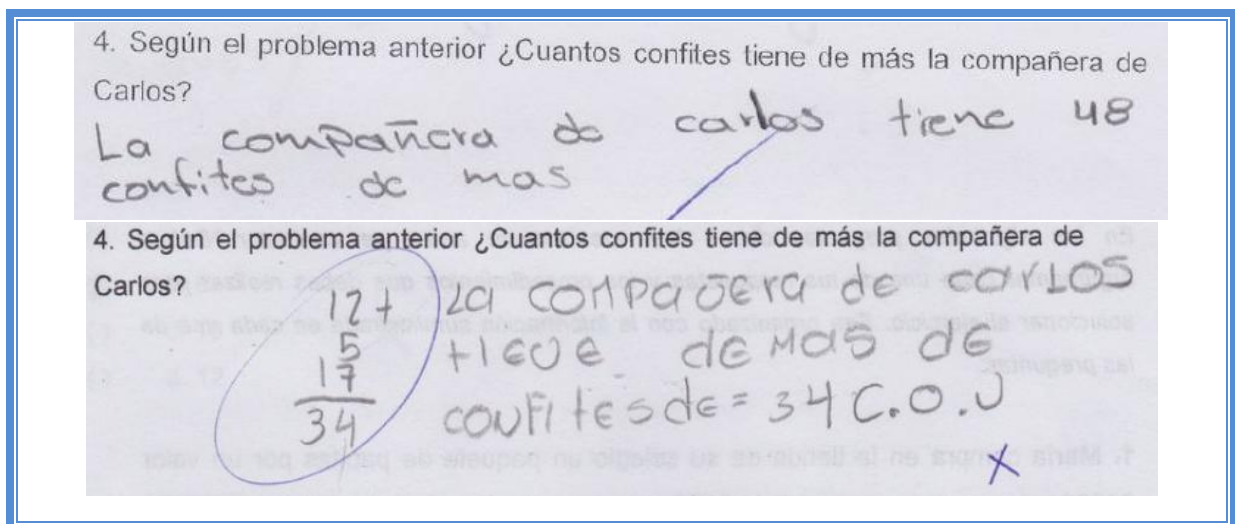 4. Según el problema anterior ¿Cuantos confites tiene de más la compañera de
Carlos?
La compañera de carlos tiene 48
confites de mas
4. Según el problema anterior ¿Cuantos confites tiene de más la compañera de
Carlos?
12+
5
17
34
La compaÑera de carLos
tieNe de mas de
coNfites de = 34 C.O.N